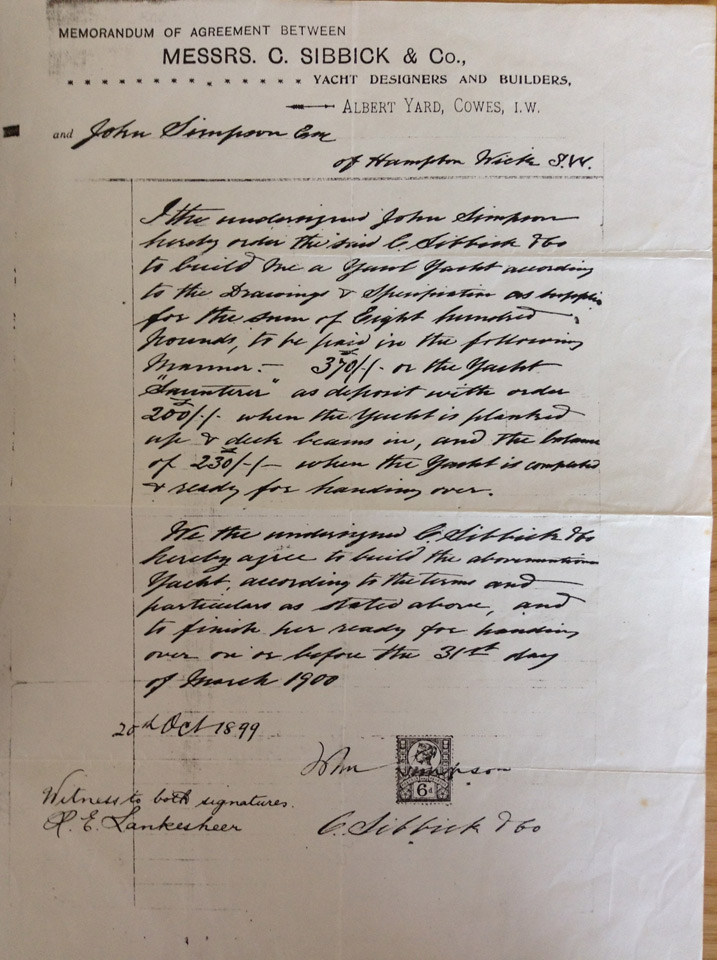 MEMORANDUM OF AGREEMENT BETWEEN
MESSRS. C. SIBBICK & Co.,
YACHT DESIGNERS AND BUILDERS,
ALBERT YARD, COWES, I.W.
and John Simpson Esq
of Hampton Wick S.W.
I the undersigned John Simpson
hereby order the said C. Sibbick & Co
to build me a Yawl Yacht according
to the Drawings & Specification as supplie
for the sum of Eight hundred
pounds, to be paid in the following
manner:— 370/-/- or the Yacht
"Saunterer" as deposit with order
200/-/- when the Yacht is planked
up & deck beams in, and the balance
of 230/-/- when the Yacht is completed
& ready for handing over.
We the undersigned C. Sibbick & Co
hereby agree to build the abovemention
Yacht, according to the terms and
particulars as stated above, and
to finish her ready for handing
over on or before the 31st day
of March 1900
20th Oct 1899
John Simpson
6d
Witness to both signatures.
E.
C. Sibbick & Co